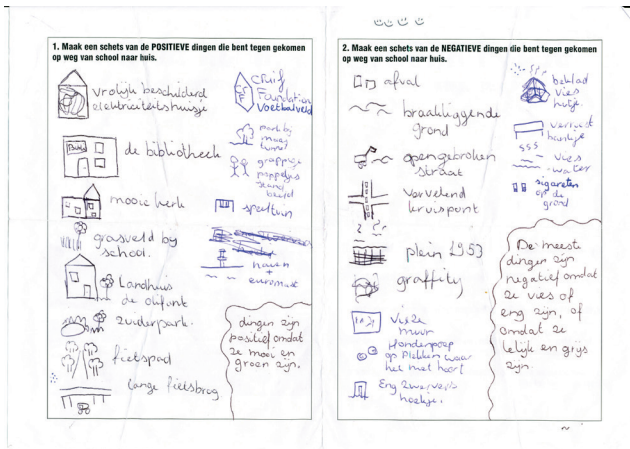 1. Maak een schets van de POSITIEVE dingen die bent tegen gekomen
op weg van school naar huis.
vrolijk beschilderd
elektriciteitshuisje
de bibliotheek
mooie kerk
grasveld bij
school.
Landhuis
de olifant
zuiderpark.
fietspad
lange fietsbrug
Cruif
Foundation
voetbalveld
park bij
tunnel
grappige
poppetjes
stand
beeld
speeltuin
haven
+
euromast
dingen zijn
positief omdat
ze mooi en
groen zijn.
2. Maak een schets van de NEGATIEVE dingen die bent tegen gekomen
op weg van school naar huis.
afval
braakliggende
grond
opengebroken
straat
vervelend
kruispunt
plein 1953
graffity
vieze
muur
Hondenpoep
op plekken waar
het niet hoort
Eng zwervers
hoekje.
beklad
vies
hutje
verrot
bankje
vies
water
sigareten
op de
grond
De meeste
dingen zijn
negatief omdat
ze vies of
eng zijn, of
omdat ze
lelijk en grijs
zijn.